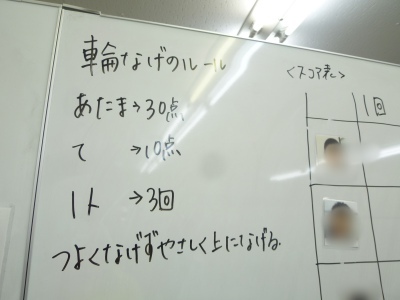 輪なげのルール
あたま→30点
て →10点
1人 →3回
つよくなげずやさしく上になげる
<スコア表>
1回